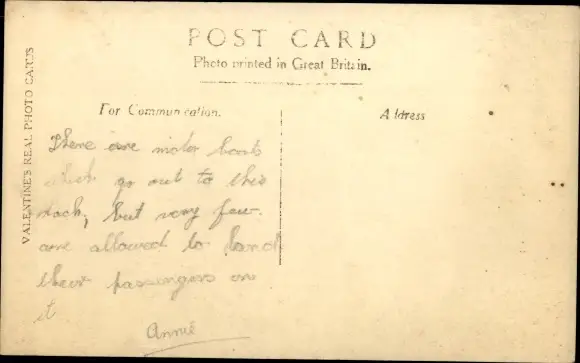 POST CARD
Photo printed in Great Britain.
VALENTINE'S REAL PHOTO CARDS
For Communication.
Address
There are motor boats
which go out to this
rock, but very few
are allowed to land
their passengers on
it
Annie